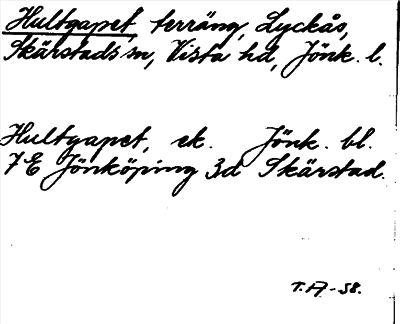 Hultgapet, terräng, Lyckås,
Skärstads sn, Vista hd, Jönk. l.
Hultgapet, ek. Jönk. bl.
7 E Jönköping 3d Skärstad.
T.A-58.